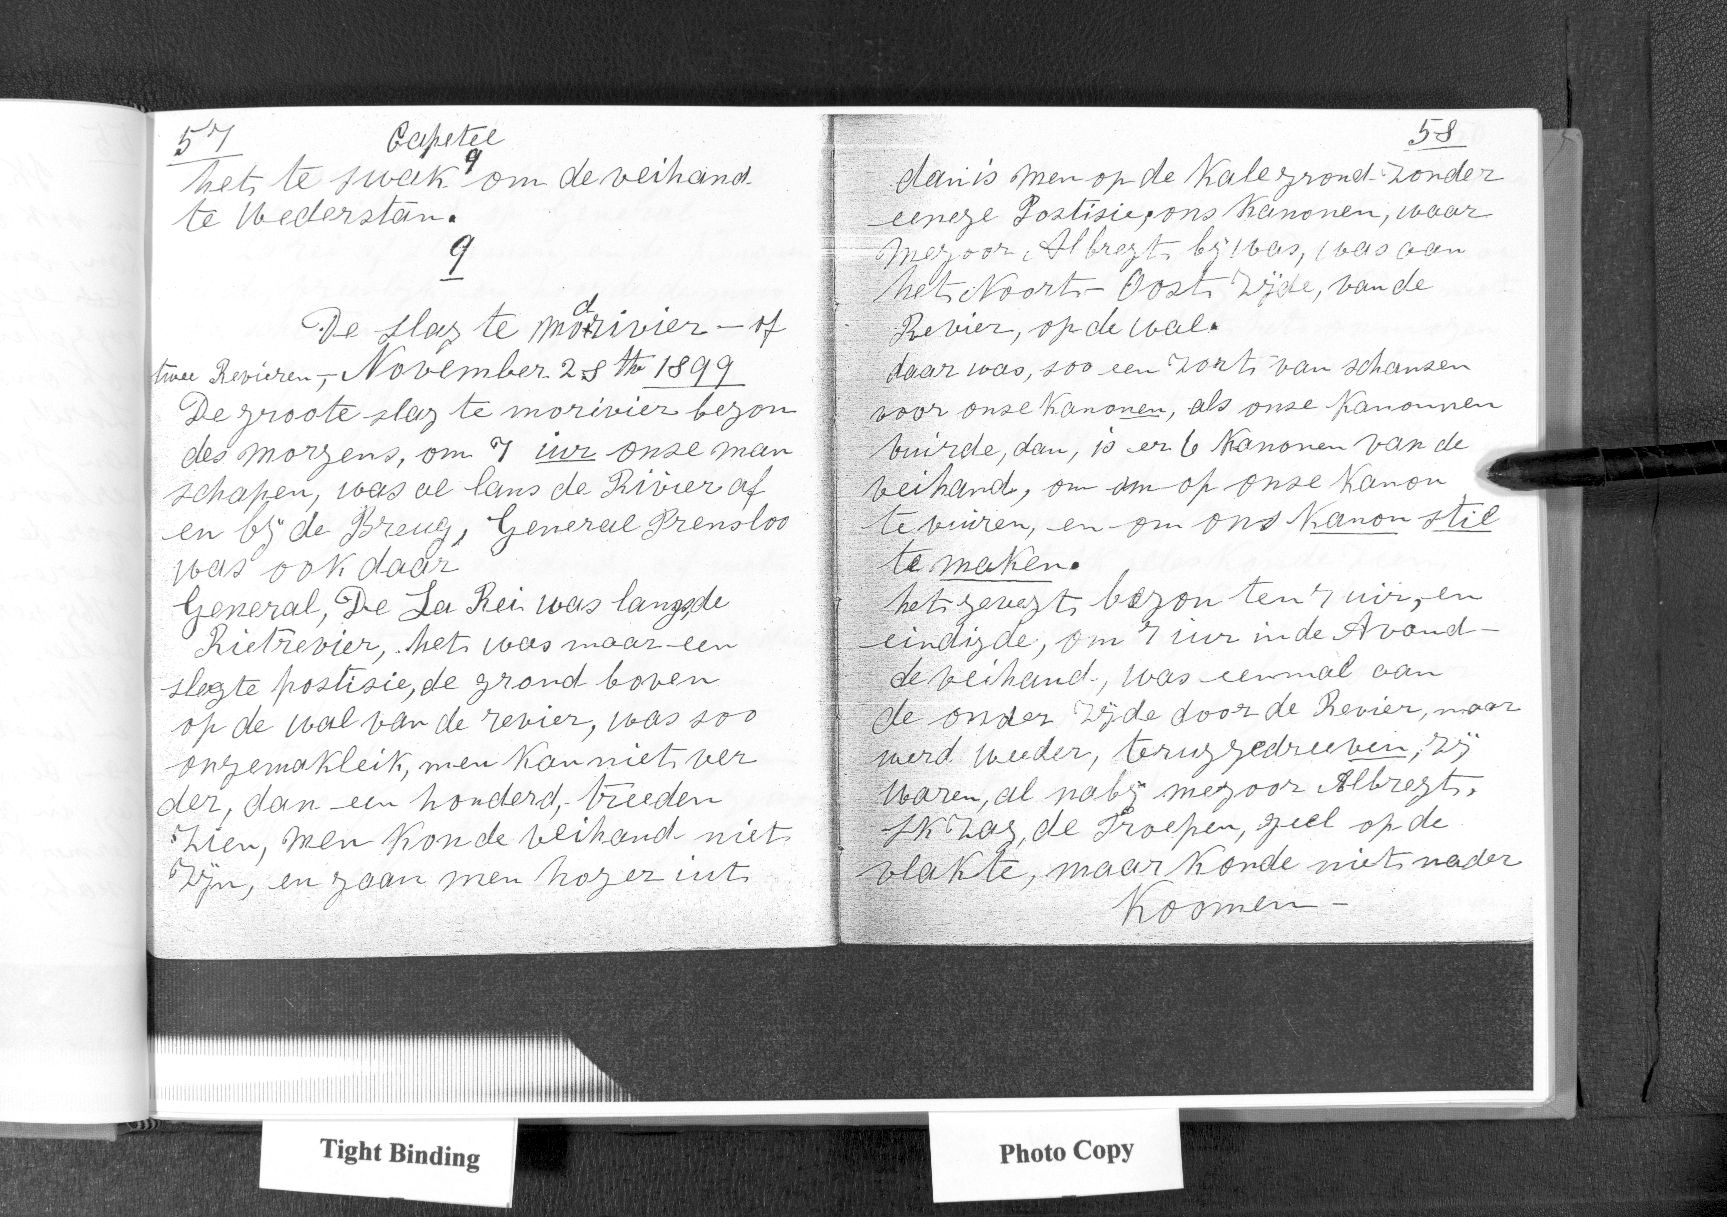 57 Capetel
9
het te swak om de veihand
te wederstan.
9
De slag te modrivier - of
twee Revieren, - November 28th 1899
De groote slag te morivier begon
des morgens, om 7 iur onse man
schapen, was al lans de Rivier af
en bij de Breug, General Prensloo
was ook daar
General, De La Rei was langs de
Rietrevier, het was maar een
slegte postisie, de grond boven
op de wal van de revier, was soo
ongemakleik, men kan niet ver
der, dan een honderd, treeden
Zien, men konde veihand niet
Zijn, en gaan men hoger iut
58
dan is men op de kale grond zonder
eenege Postisie, ons kanonen, waar
megoor Albregt bij was, was aan
het Noort - Oost Zijde, van de
Revier, op de wal.
daar was, soo een zort van schansen
voor onse kanonen, als onse kanonnen
vuirde, dan, is er 6 kanonen van de
veihand, om om op onse kanon
te vuiren, en om ons kanon stil
te maken.
het gevegt begon ten 7 uir, en
eindigde, om 7 iur in de Avond -
de veihand, was eenmal aan
de onder zijde door de Revier, maar
werd weeder, teruggedreeven, zij
waren, al nabij megoor Albregt.
Ik zag, de Troepen, geel op de
vlakte, maar konde niet nader
Koomen -
Tight Binding
Photo Copy